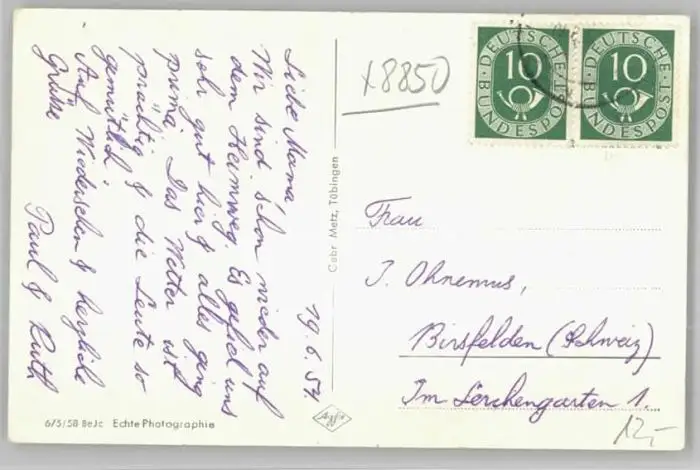 19.6.54.
Liebe Mama!
Wir sind schon wieder auf
dem Heimweg. Es gefiel uns
sehr gut hier & alles ging
prima. Das Wetter ist
prächtig & die Leute so
gemütlich.
Auf Wiedersehen & herzliche
Grüße
Paul & Ruth
6/5/58 BeJc Echte Photographie
Gebr. Metz, Tübingen
Agfa
x8850
DEUTSCHE BUNDESPOST
10
DEUTSCHE BUNDESPOST
10
Frau
J. Ohnemus,
Birsfelden (Schweiz)
Im Lerchengarten 1.
12,-